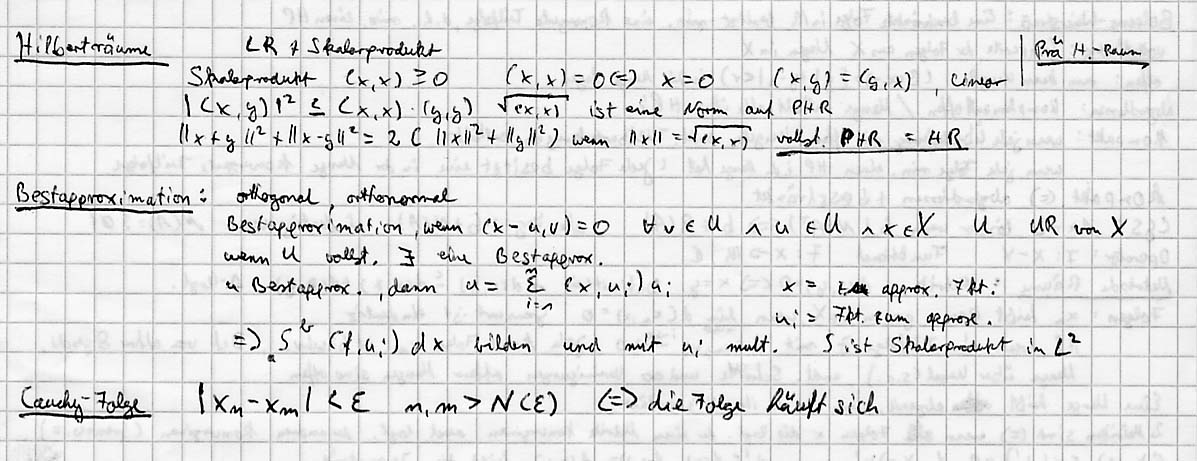 Hilberträume LR + Skalarprodukt Prä H.-Raum
Skalarprodukt (x,x) ≥ 0 (x,x) = 0 (=) x = 0 (x,y) = (y,x), linear
|(x,y)|² ≤ (x,x)·(y,y) √(x,x) ist eine Norm auf PHR
||x+y||² + ||x-y||² = 2 (||x||² + ||y||²) wenn ||x|| = √(x,x) vollst. PHR = HR
Bestapproximation: orthogonal, orthonormal
Bestapproximation, wenn (x-u,v) = 0 ∀ v ∈ U ∧ u ∈ U ∧ x ∈ X U UR von X
wenn U vollst. ∃ eine Bestapprox.
u Bestapprox., dann u = Σ (x,u_i) u_i x = approx. Fkt.
u_i = Fkt. zum approx.
=> ∫ (f,u_i) dx bilden und mit u_i mult. ∫ ist Skalarprodukt in L²
Cauchy-Folge |x_n - x_m| < ε n,m > N(ε) (=) die Folge häuft sich